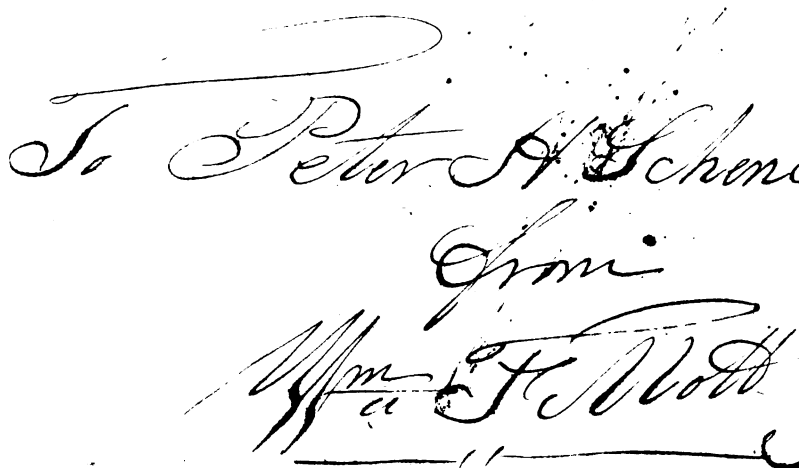 To Peter H Schenc
from
Wm F Mott